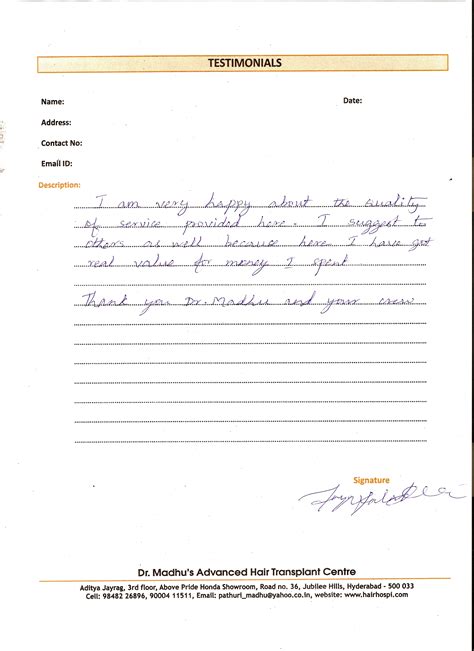 TESTIMONIALS
Name: Date:
Address:
Contact No:
Email ID:
Description:
I am very happy about the Quality
of service provided here. I suggest to
others as well because here I have got
real value for money I spent
Thank you Dr. Madhu and your crew
Signature
Dr. Madhu's Advanced Hair Transplant Centre
Aditya Jayrag, 3rd floor, Above Pride Honda Showroom, Road no. 36, Jubilee Hills, Hyderabad - 500 033
Cell: 98482 26896, 90004 11511, Email: pathuri_madhu@yahoo.co.in, website: www.hairhospi.com